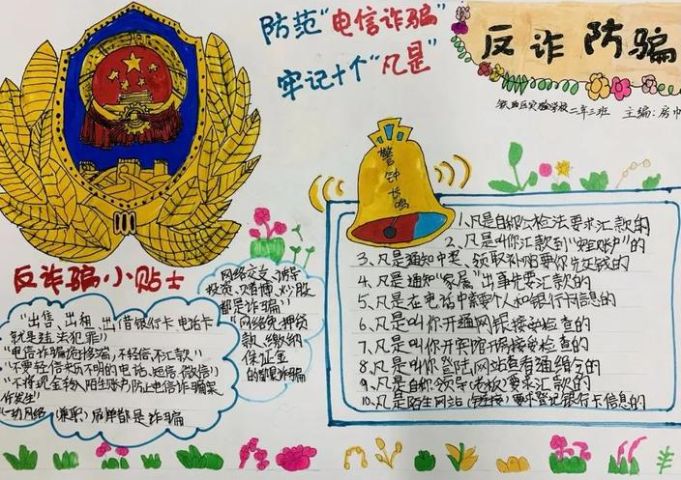 防范"电信诈骗"
牢记十个"凡是"
反诈防骗
实验学校二年三班 主编:房
警钟长鸣
1、凡是自称公检法要求汇款的
2、凡是叫你汇款到"安全账户"的
3、凡是通知中奖、领取补贴要你先交钱的
4、凡是通知"家属"出事先要汇款的
5、凡是在电话中索要个人和银行卡信息的
6、凡是叫你开通网银接受检查的
7、凡是叫你开宾馆开房接受检查的
8、凡是叫你登陆网站查看通缉令的
9、凡是自称领导(老板)要求汇款的
10、凡是陌生网站(链接)要求登记银行卡信息的
反诈骗小贴士
"出售、出租、出借银行卡 电话卡
就是违法犯罪"
"电信诈骗 不轻信,不汇款"
"不要轻信来历不明的电话、短信、微信"
"不将现金 陌生账户 防止电信诈骗案
件发生"
"一切网络(兼职) 都是诈骗
"网络交友、诱导
投资、赌博、炒股
都是诈骗"
"网络免押贷
款、缴纳
保证金
的都是诈骗